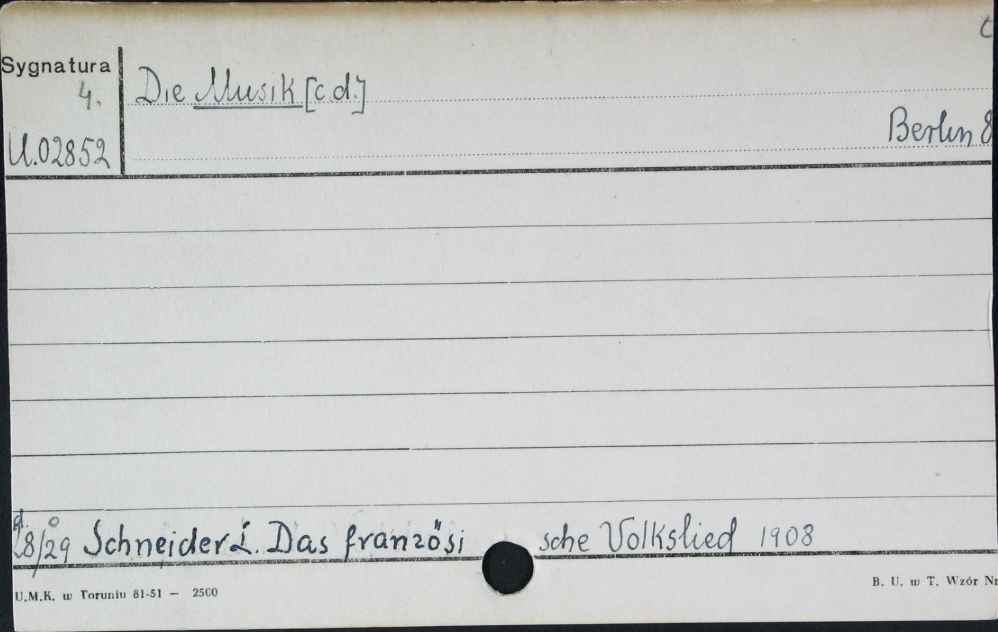 Sygnatura
4.
Die Musik [c.d.]
Berlin 8
U.02852
28/29 Schneider L. Das französi sche Volkslied 1908
U.M.K. w Toruniu 81-51 — 2500
B. U. w T. Wzór Nr